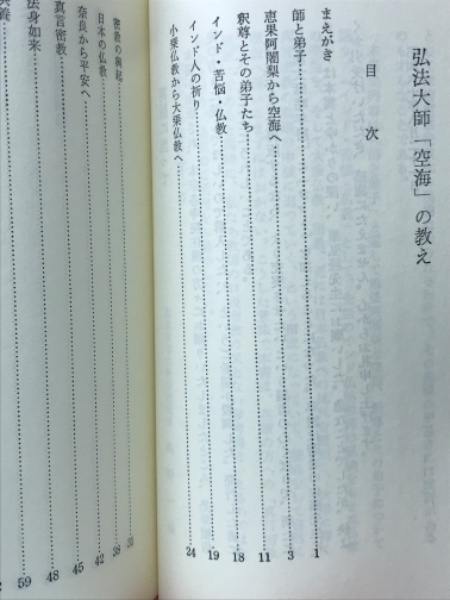 弘法大師「空海」の教え
目次
まえがき 1
師と弟子 3
恵果阿闍梨から空海へ 11
釈尊とその弟子たち 18
インド・苦悩・仏教 19
インド人の祈り 24
小乗仏教から大乗仏教へ
31
密教の興起 38
日本の仏教 42
奈良から平安へ 45
真言密教 48
法身如来 59